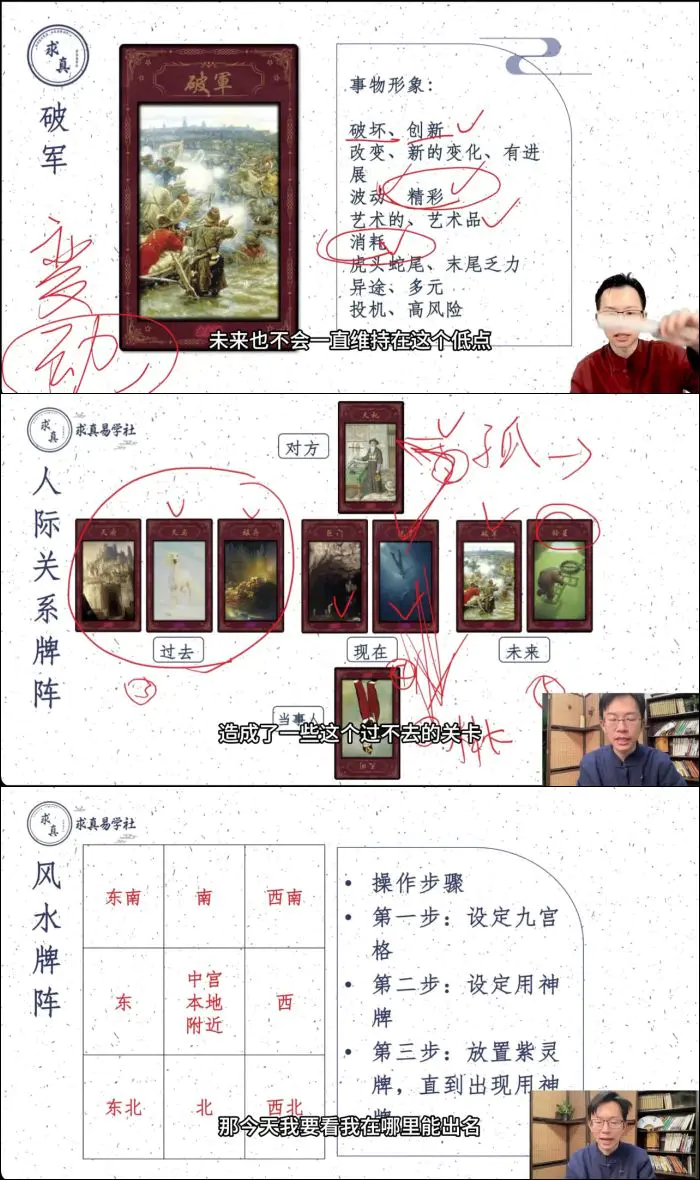 求真
破军
破軍
事物形象：
破坏、创新
改变、新的变化、有进
展
波动、精彩
艺术的、艺术品
消耗
虎头蛇尾、末尾乏力
异途、多元
投机、高风险
变
动
未来也不会一直维持在这个低点
求真
求真易学社
人际关系牌阵
对方
天机
孤
天府
天马
禄存
巨门
破军
铃星
过去
现在
未来
当事人
造成了一些这个过不去的关卡
求真
求真易学社
风水牌阵
东南
南
西南
东
中宫
本地
附近
西
东北
北
西北
• 操作步骤
• 第一步：设定九宫
格
• 第二步：设定用神
牌
• 第三步：放置紫灵
牌，直到出现用神
那今天我要看我在哪里能出名